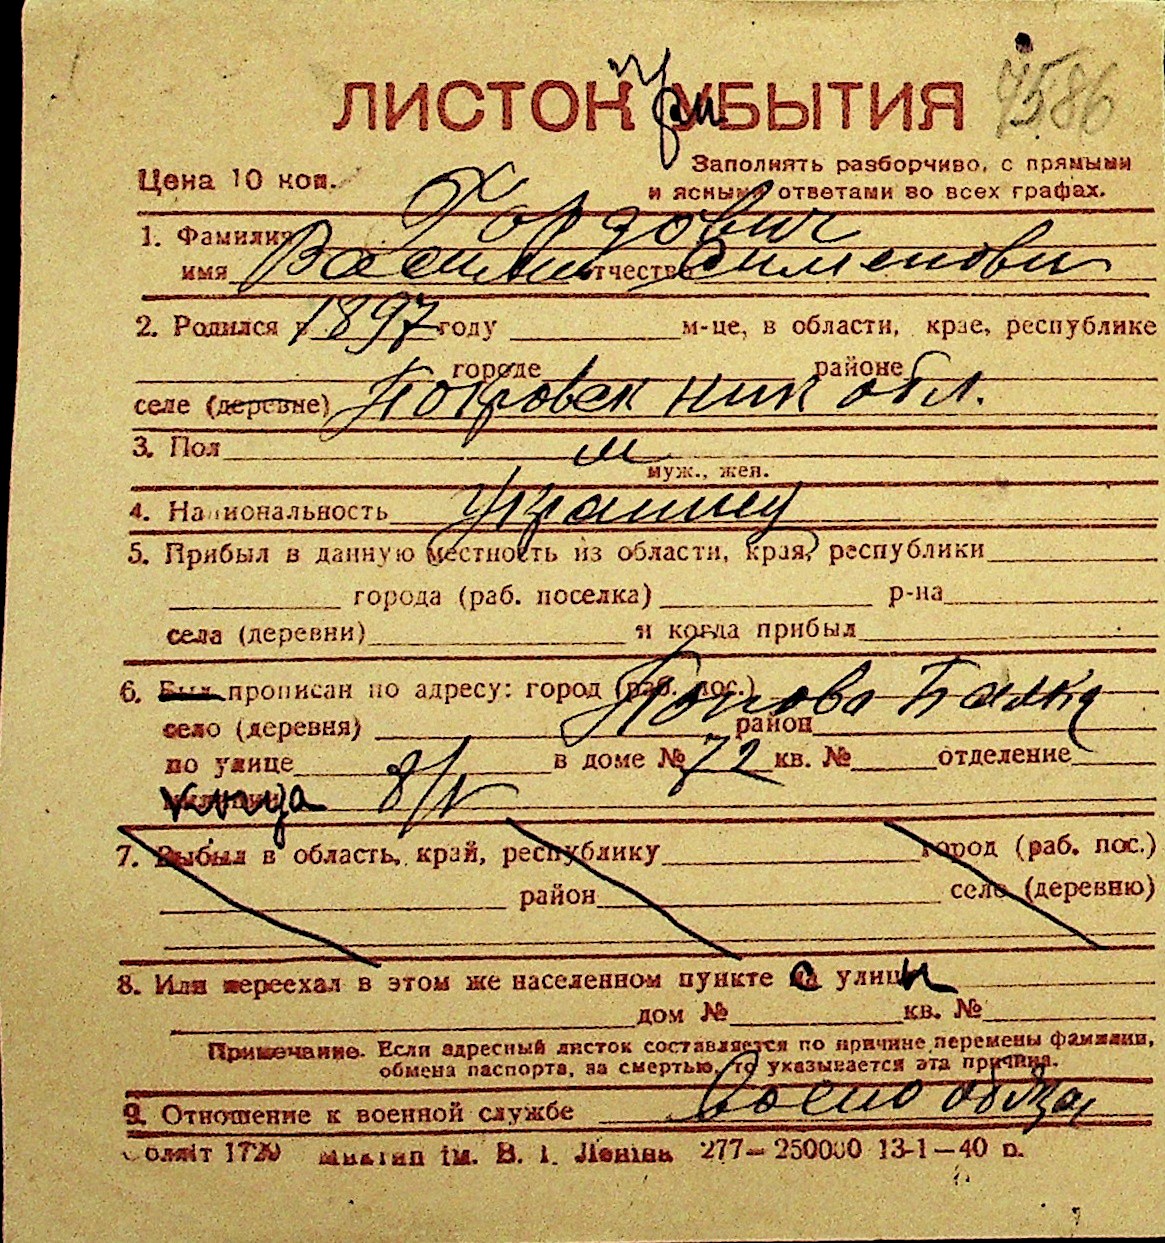 ЛИСТОК УБЫТИЯ 4586
Цена 10 коп.
Заполнять разборчиво, с прямыми
и ясными ответами во всех графах.
1. Фамилия Гордович
имя Василий отчество Сименович
2. Родился в 1897 году м-це, в области, крае, республике
городе районе
селе (деревне) Покровск ник обл.
3. Пол м
муж., жен.
4. Национальность Украинец
5. Прибыл в данную местность из области, края, республики
города (раб. поселка) р-на
села (деревни) и когда прибыл
6. Был прописан по адресу: город (раб. пос.) Попова Балка
село (деревня) район
по улице в доме № 72 кв. № отделение
8/IV
7. Выбыл в область, край, республику город (раб. пос.)
район село (деревню)
8. Или переехал в этом же населенном пункте с улицы
дом № кв. №
Примечание. Если адресный листок составляется по причине перемены фамилии,
обмена паспорта, за смертью, то указывается эта причина.
9. Отношение к военной службе Военообяз
Облліт 1720 ім. В. І. Леніна 277—250000 13-1—40 р.